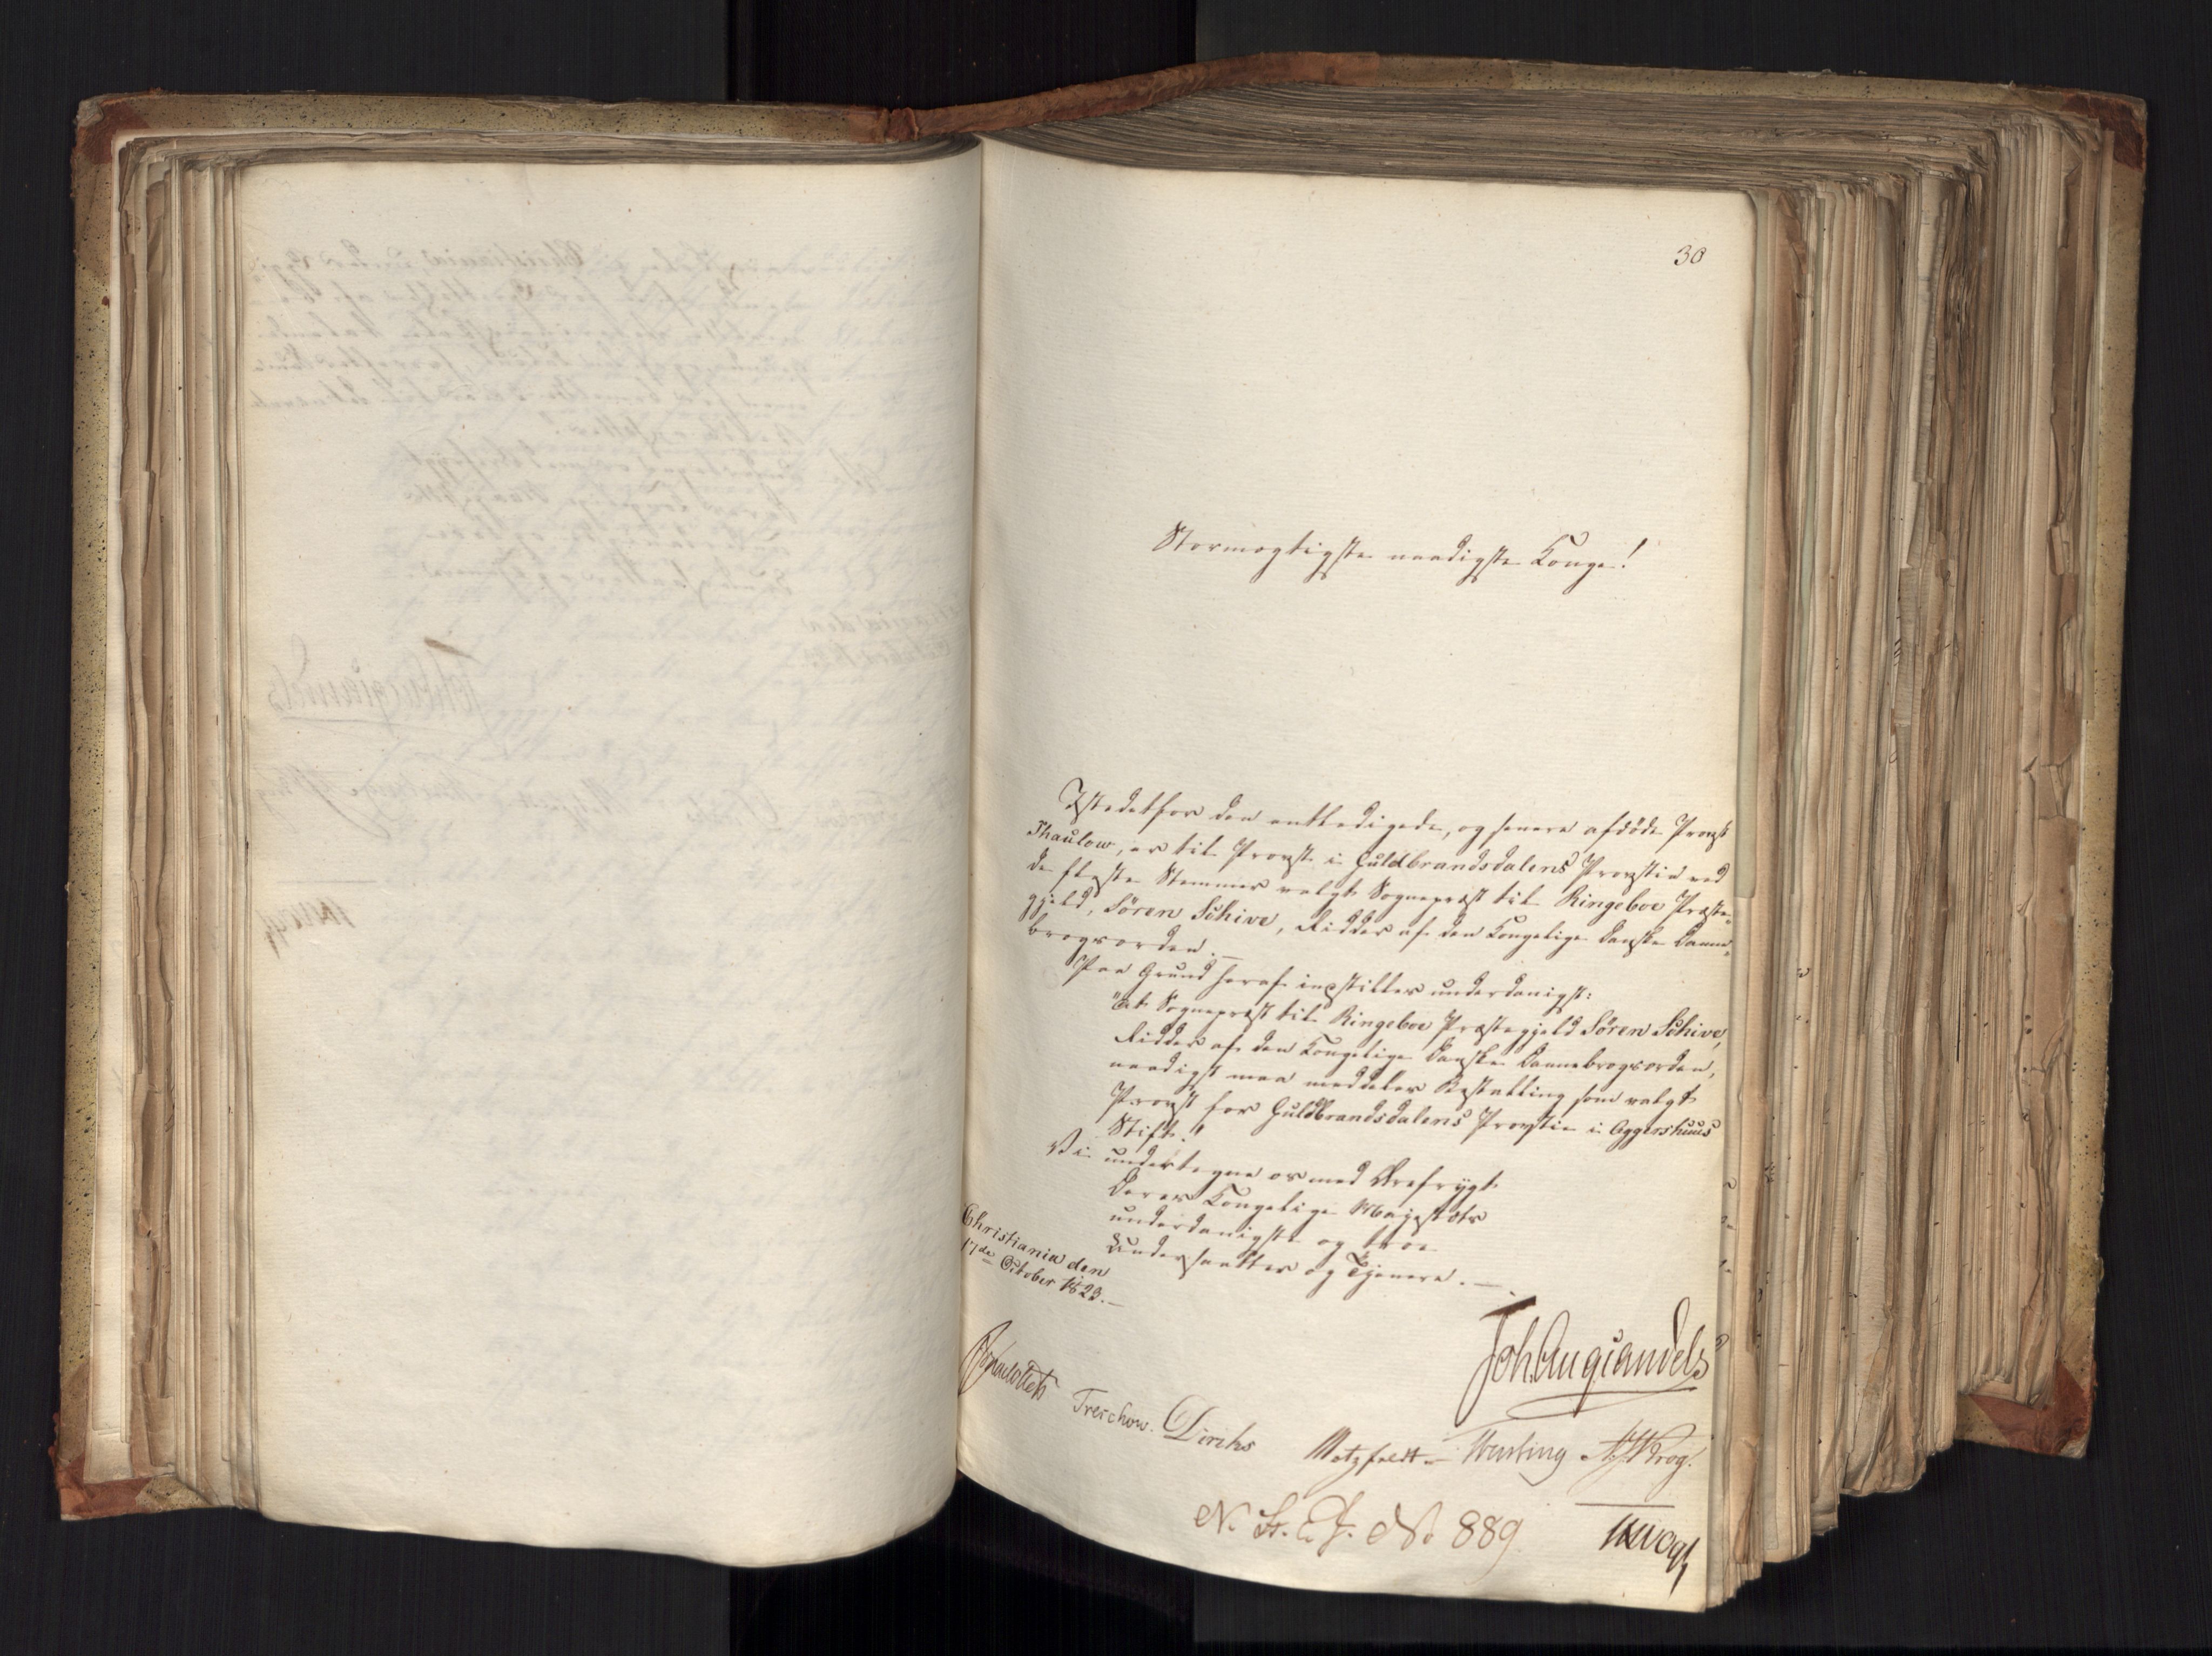 30
Stormægtigste naadigste Konge!
Istedetfor den entledigede, og senere afdöde Provst
Thaulow, er til Provst i Guldbrandsdalens Provstie ved
de fleste Stemmer valgt Sognepræst til Ringeboe Præste-
gjeld, Sören Schive, Ridder af den Kongelige Danske Danne-
brogsorden.—
Paa Grund heraf indstilles underdanigst:
"At Sognepræst til Ringeboe Præstegjeld Sören Schive,
Ridder af den Kongelige Danske Dannebrogsorden,
naadigst maa meddeles Bestalling som valgt
Provst for Guldbrandsdalens Provstie i Aggershuus
Stift."
Vi undertegne os med Ærefrygt
Deres Kongelige Majestæts
underdanigste og troe
Undersaatter og Tjenere.—
Christiania den
17de October 1823.—
Joh. Aug. Sandels
Treschow. Diriks Motzfeldt Krog.
N. St. C. J. No 889